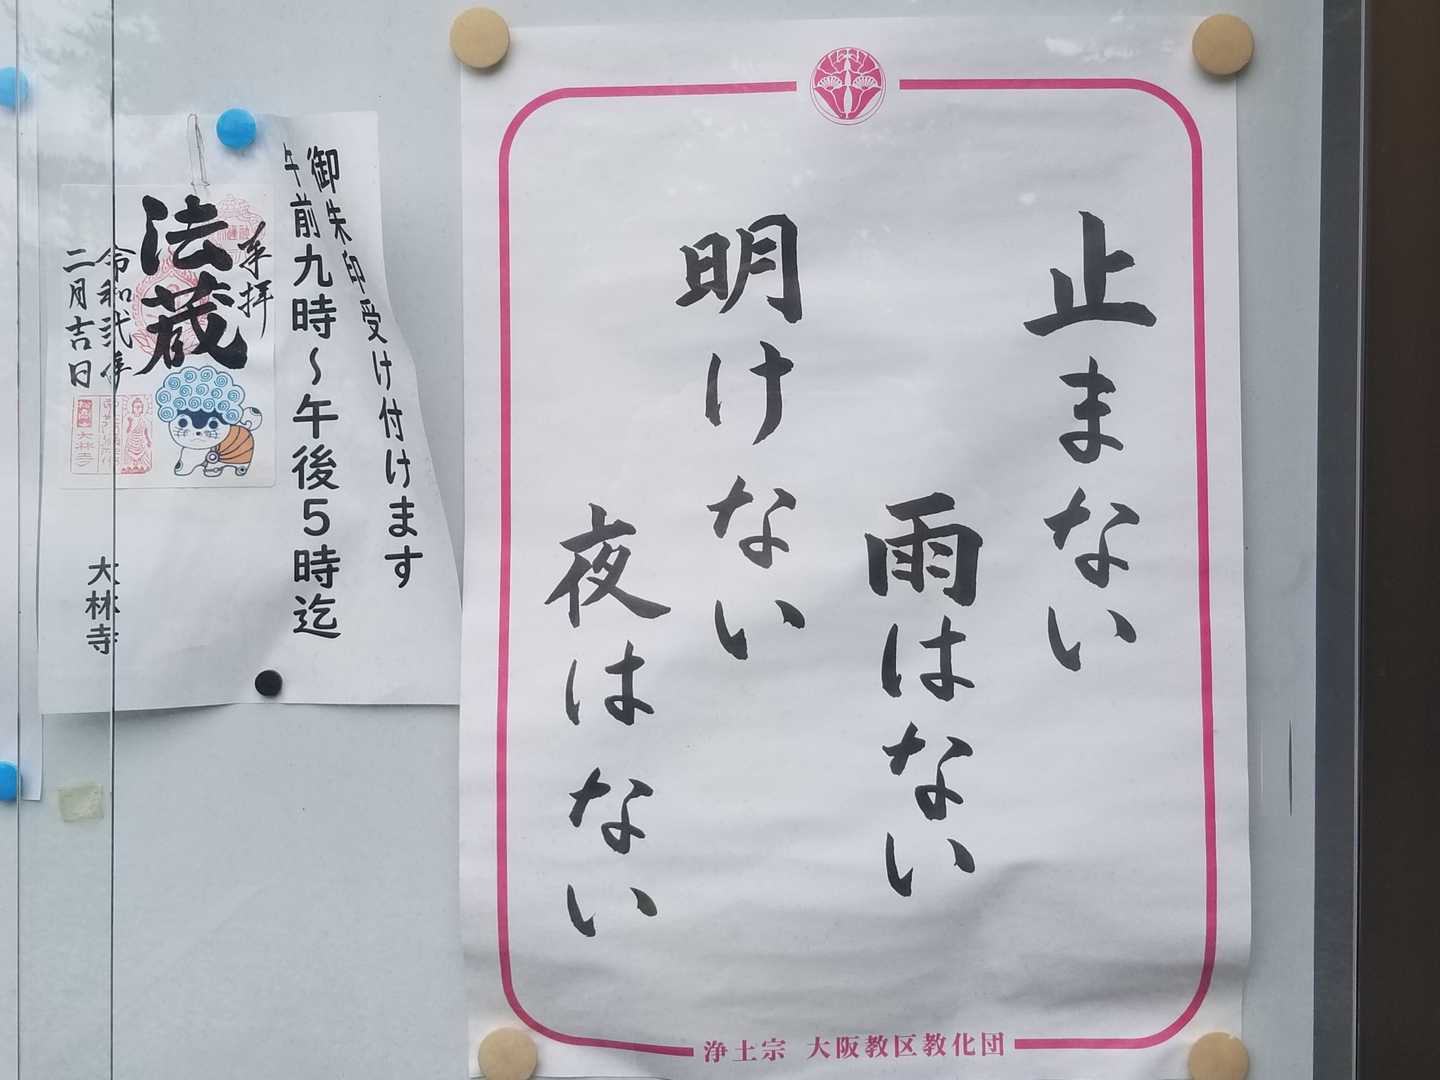 止まない
雨はない
明けない
夜はない
浄土宗 大阪教区教化団
御朱印受け付けます
午前九時～午後5時迄
奉拝
法蔵
令和弐年
二月吉日
大林寺
大林寺